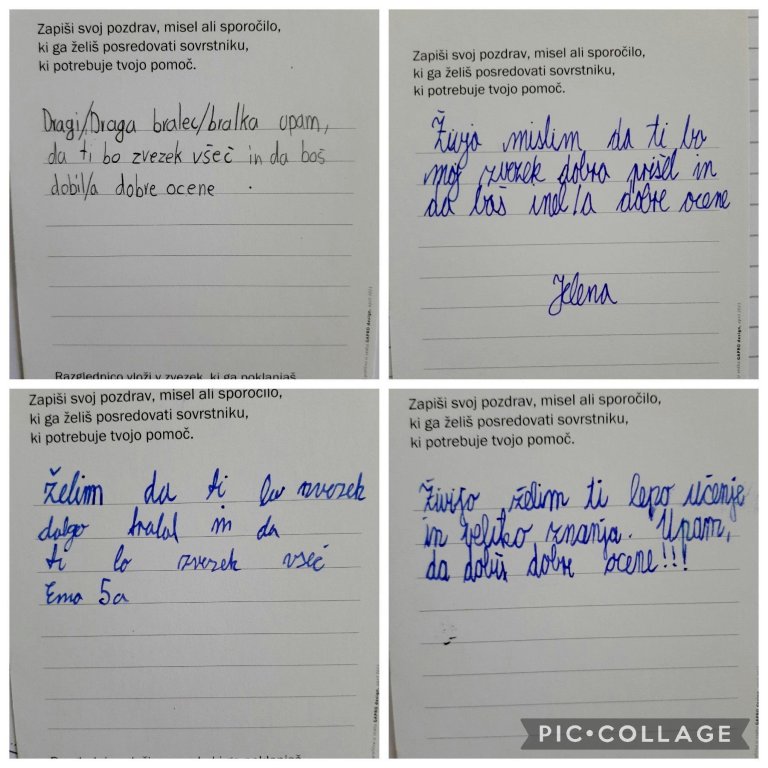 Zapiši svoj pozdrav, misel ali sporočilo,
ki ga želiš posredovati sovrstniku,
ki potrebuje tvojo pomoč.
Dragi/Draga bralec/bralka upam,
da ti bo zvezek všeč in da boš
dobil/a dobre ocene.
Razglednico vloži v zvezek, ki ga poklanjaš
Zapiši svoj pozdrav, misel ali sporočilo,
ki ga želiš posredovati sovrstniku,
ki potrebuje tvojo pomoč.
Živjo mislim da ti bo
moj zvezek dobro prišel in
da boš imel/a dobre ocene
Jelena
Zapiši svoj pozdrav, misel ali sporočilo,
ki ga želiš posredovati sovrstniku,
ki potrebuje tvojo pomoč.
Želim da ti bo zvezek
dolgo trajal in da
ti bo zvezek všeč
Ema 5a
Zapiši svoj pozdrav, misel ali sporočilo,
ki ga želiš posredovati sovrstniku,
ki potrebuje tvojo pomoč.
Živijo želim ti lepo učenje
in veliko znanja. Upam,
da dobiš dobre ocene!!!
PIC•COLLAGE